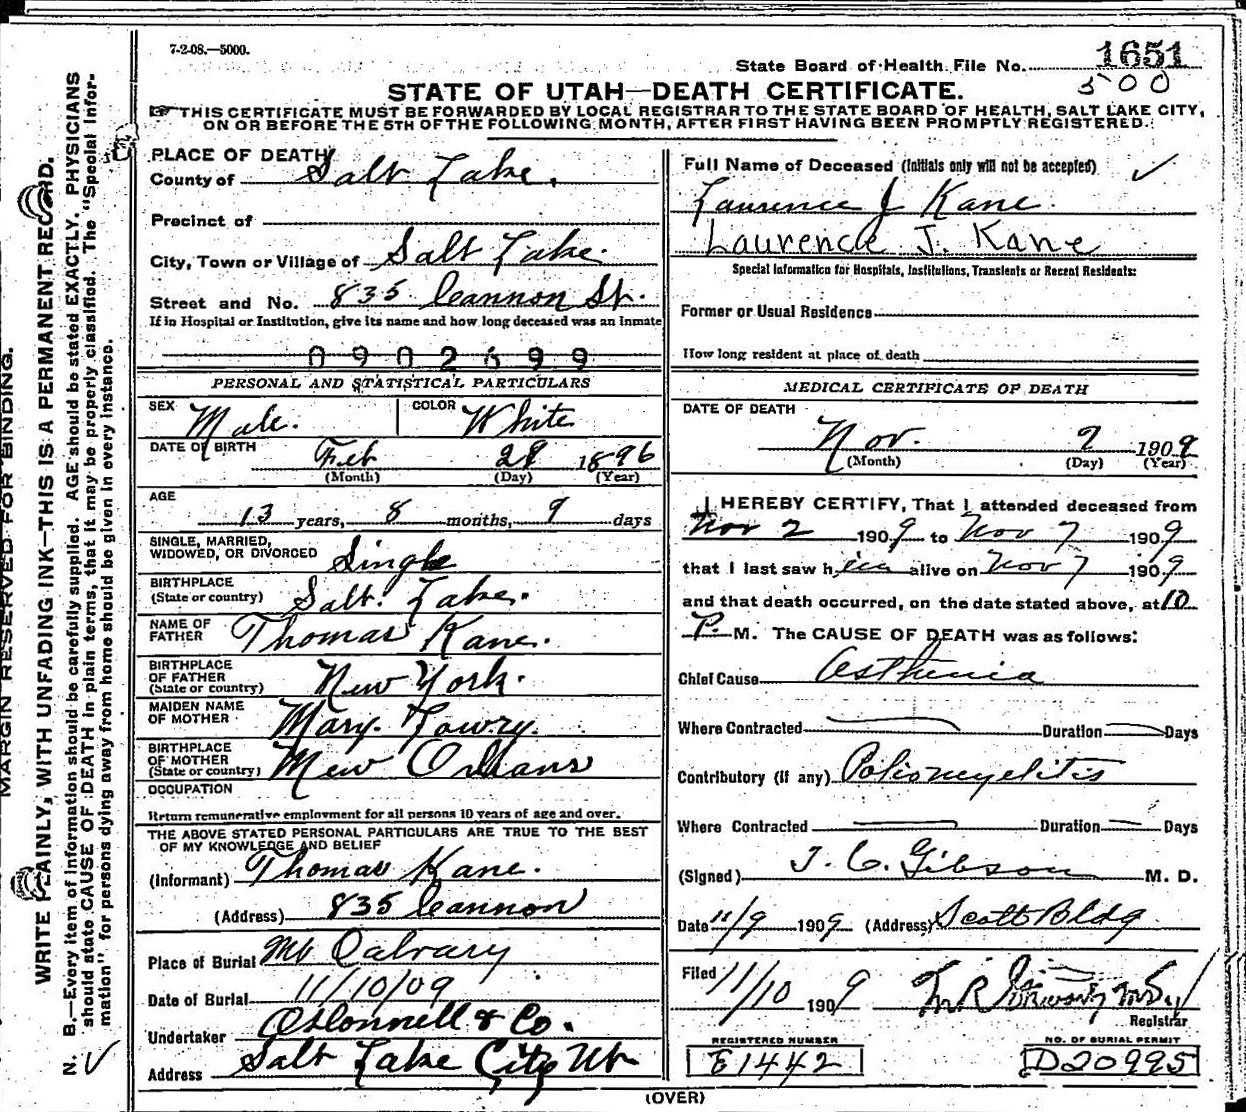 7-2-08.—5000.
State Board of Health File No. 1651
500
STATE OF UTAH—DEATH CERTIFICATE.
THIS CERTIFICATE MUST BE FORWARDED BY LOCAL REGISTRAR TO THE STATE BOARD OF HEALTH, SALT LAKE CITY,
ON OR BEFORE THE 5TH OF THE FOLLOWING MONTH, AFTER FIRST HAVING BEEN PROMPTLY REGISTERED.
MARGIN RESERVED FOR BINDING.
WRITE PLAINLY, WITH UNFADING INK—THIS IS A PERMANENT RECORD.
N. B.—Every item of information should be carefully supplied. AGE should be stated EXACTLY. PHYSICIANS
should state CAUSE OF DEATH in plain terms, that it may be properly classified. The "Special Infor-
mation" for persons dying away from home should be given in every instance.
PLACE OF DEATH
County of Salt Lake.
Precinct of
City, Town or Village of Salt Lake.
Street and No. 835 Cannon St.
If in Hospital or Institution, give its name and how long deceased was an Inmate
0902699
PERSONAL AND STATISTICAL PARTICULARS
SEX Male. COLOR White
DATE OF BIRTH Feb 29 1896
(Month) (Day) (Year)
AGE
13 years, 8 months, 9 days
SINGLE, MARRIED,
WIDOWED, OR DIVORCED Single
BIRTHPLACE
(State or country) Salt Lake.
NAME OF
FATHER Thomas Kane.
BIRTHPLACE
OF FATHER
(State or country) New York.
MAIDEN NAME
OF MOTHER Mary Lowry.
BIRTHPLACE
OF MOTHER
(State or country) New Orleans
OCCUPATION
Return remunerative employment for all persons 10 years of age and over.
THE ABOVE STATED PERSONAL PARTICULARS ARE TRUE TO THE BEST
OF MY KNOWLEDGE AND BELIEF
(Informant) Thomas Kane.
(Address) 835 Cannon
Place of Burial Mt Calvary
Date of Burial 11/10/09
Undertaker O'Donnell & Co.
Address Salt Lake City Ut
Full Name of Deceased (Initials only will not be accepted)
Laurence J Kane.
Laurence J. Kane
Special Information for Hospitals, Institutions, Transients or Recent Residents:
Former or Usual Residence
How long resident at place of death
MEDICAL CERTIFICATE OF DEATH
DATE OF DEATH
Nov. 1909
(Month) (Day) (Year)
I HEREBY CERTIFY, That I attended deceased from
Nov 2 1909 to Nov 7 1909
that I last saw him alive on Nov 7 1909
and that death occurred, on the date stated above, at 10
P. M. The CAUSE OF DEATH was as follows:
Chief Cause Asthenia
Where Contracted Duration Days
Contributory (if any) Poliomyelitis
Where Contracted Duration Days
(Signed) J. C. Gibson M. D.
Date 11/9 1909 (Address) Scott Bldg
Filed 11/10 1909
Registrar
REGISTERED NUMBER
E1442
NO. OF BURIAL PERMIT
D20995
(OVER)